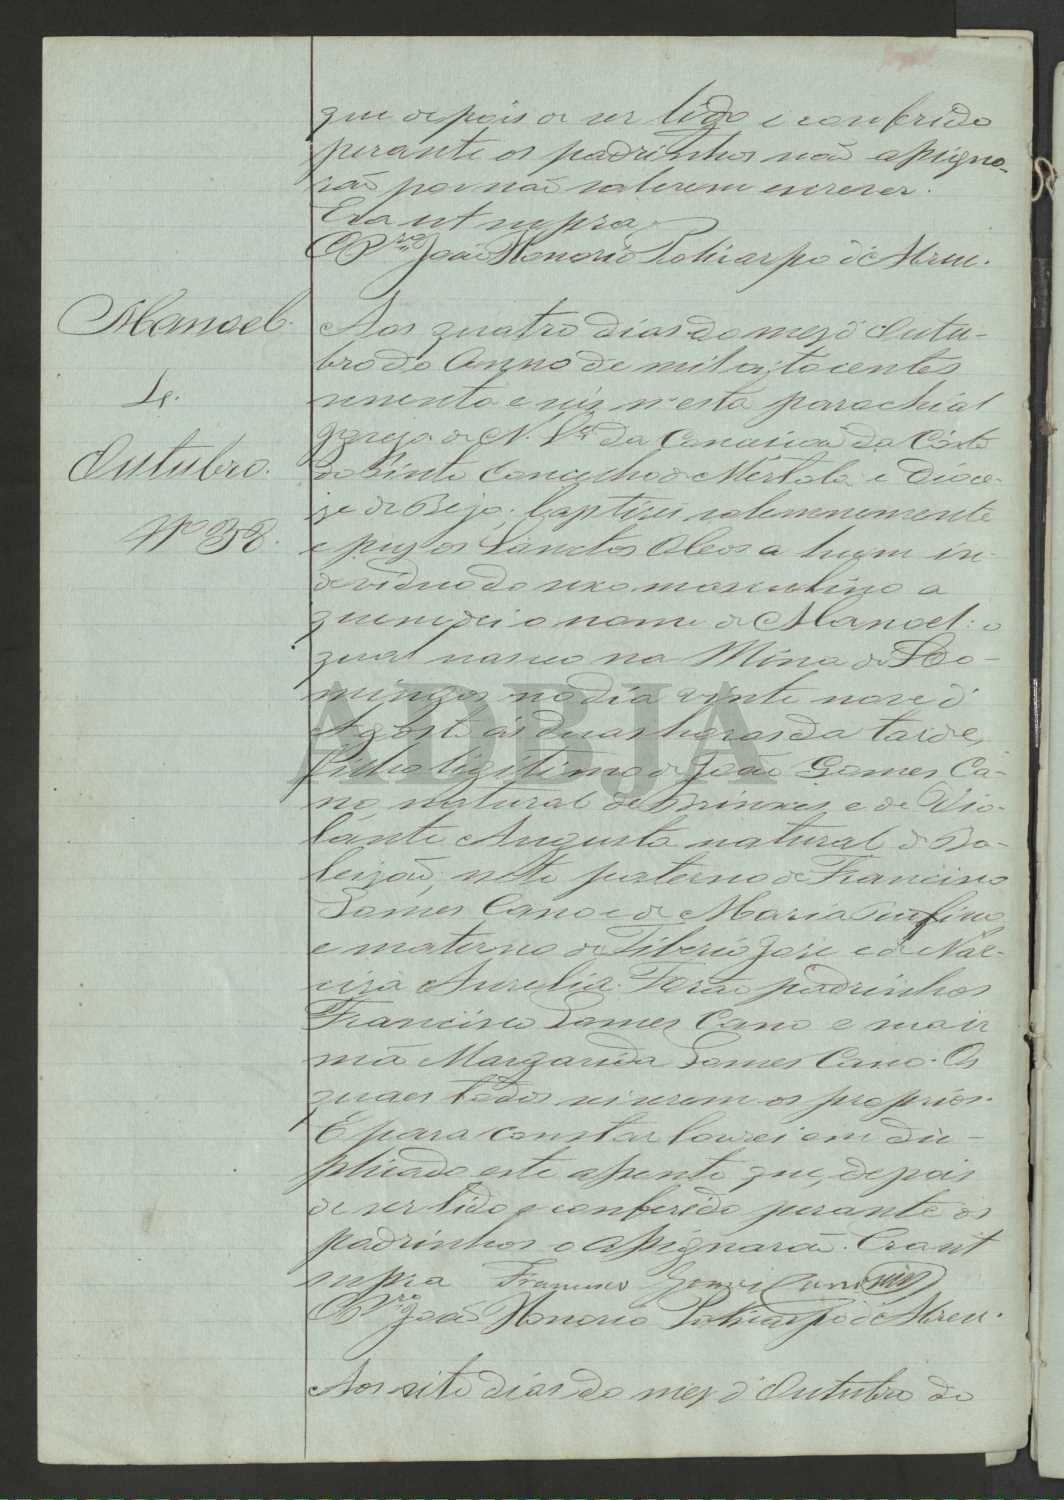 que depois de ser lido e conferido
perante os padrinhos não assigna-
rão por não saberem escrever.
Era ut supra
O Prº João Honorio Policarpo d'Abreu.
Manoel.
Aos quatro dias do mez d'Outu-
bro do Anno de mil oitocentos
4.
secenta e seis n'esta parochial
Igreja de N. Srª da Conceicão da Côrte
Outubro.
do Pinto Concelho de Mértola e Dioce-
ze de Beja, baptizei solemnemente
Nº 38.
e puz os Sanctos Oleos a hum in-
dividuo do sexo masculino a
quem dei o nome de Manoel: o
qual nasceo na Mina de S. Do-
mingos no dia vinte nove d'
Agosto ás duas horas da tarde,
filho ligitimo de João Gomes Ca-
no, natural de e de Vio-
lante Augusta natural de Ba-
leizão, neto paterno de Francisco
Gomes Cano e de Maria
e materno de Tiberio José e de Nar-
ciza Aurelia. Forão padrinhos
Francisco Gomes Cano e sua ir
mã Margarida Gomes Cano. Os
quaes todos sei serem os proprios.
E para constar lavrei em du-
plicado este assento que, depois
de ser lido e conferido perante os
padrinhos o assignarão. Era ut
supra Francisco Gomes Cano
O Prº João Honorio Policarpo d'Abreu.
Aos sete dias do mez d'Outubro do
ADBJA